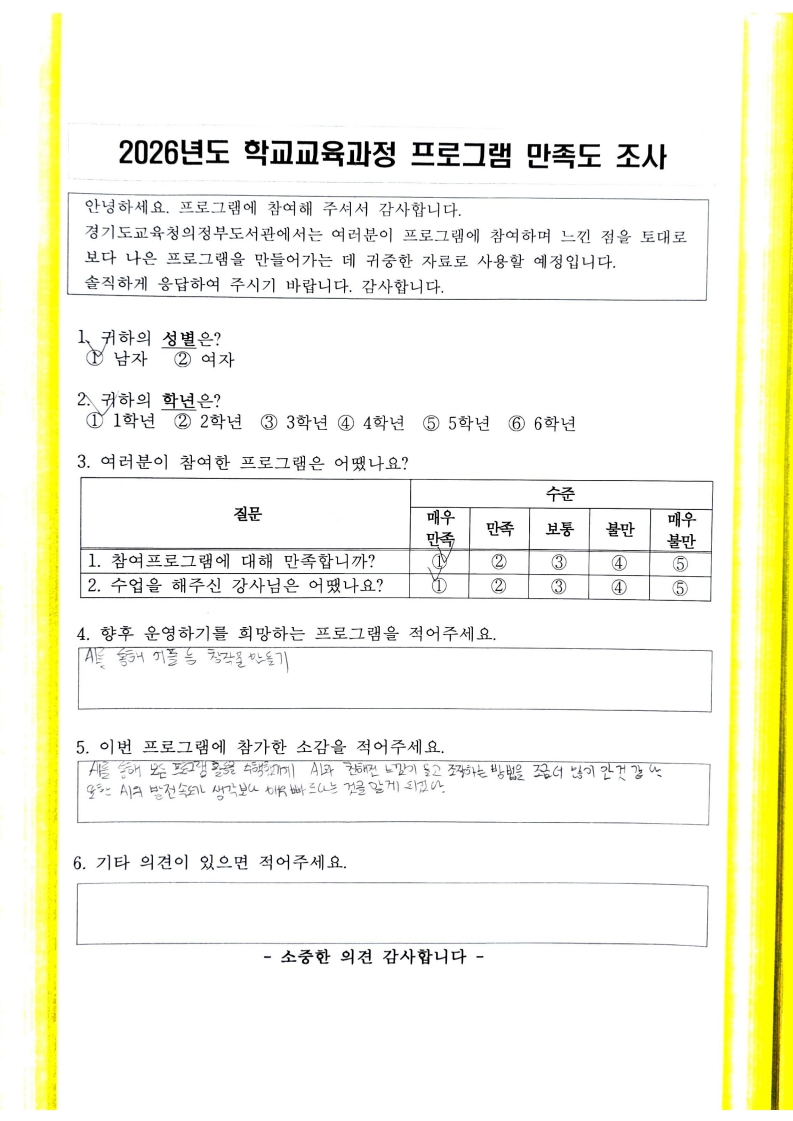 2026년도 학교교육과정 프로그램 만족도 조사
안녕하세요. 프로그램에 참여해 주셔서 감사합니다.
경기도교육청의정부도서관에서는 여러분이 프로그램에 참여하며 느낀 점을 토대로
보다 나은 프로그램을 만들어가는 데 귀중한 자료로 사용할 예정입니다.
솔직하게 응답하여 주시기 바랍니다. 감사합니다.
1. 귀하의 성별은?
① 남자 ② 여자
2. 귀하의 학년은?
① 1학년 ② 2학년 ③ 3학년 ④ 4학년 ⑤ 5학년 ⑥ 6학년
3. 여러분이 참여한 프로그램은 어땠나요?
질문 수준
매우 만족 만족 보통 불만 매우 불만
1. 참여프로그램에 대해 만족합니까? ① ② ③ ④ ⑤
2. 수업을 해주신 강사님은 어땠나요? ① ② ③ ④ ⑤
4. 향후 운영하기를 희망하는 프로그램을 적어주세요.
AI를 통해 어플 등 창작물 만들기
5. 이번 프로그램에 참가한 소감을 적어주세요.
AI를 통해 프로그램 활동을 AI와 친해진 느낌이 들고 조작하는 방법을 조금더 알기 된것 같다
또한 AI의 발전속도가 생각보다 매우빠르다는 것을 알게 되었다.
6. 기타 의견이 있으면 적어주세요.
- 소중한 의견 감사합니다 -